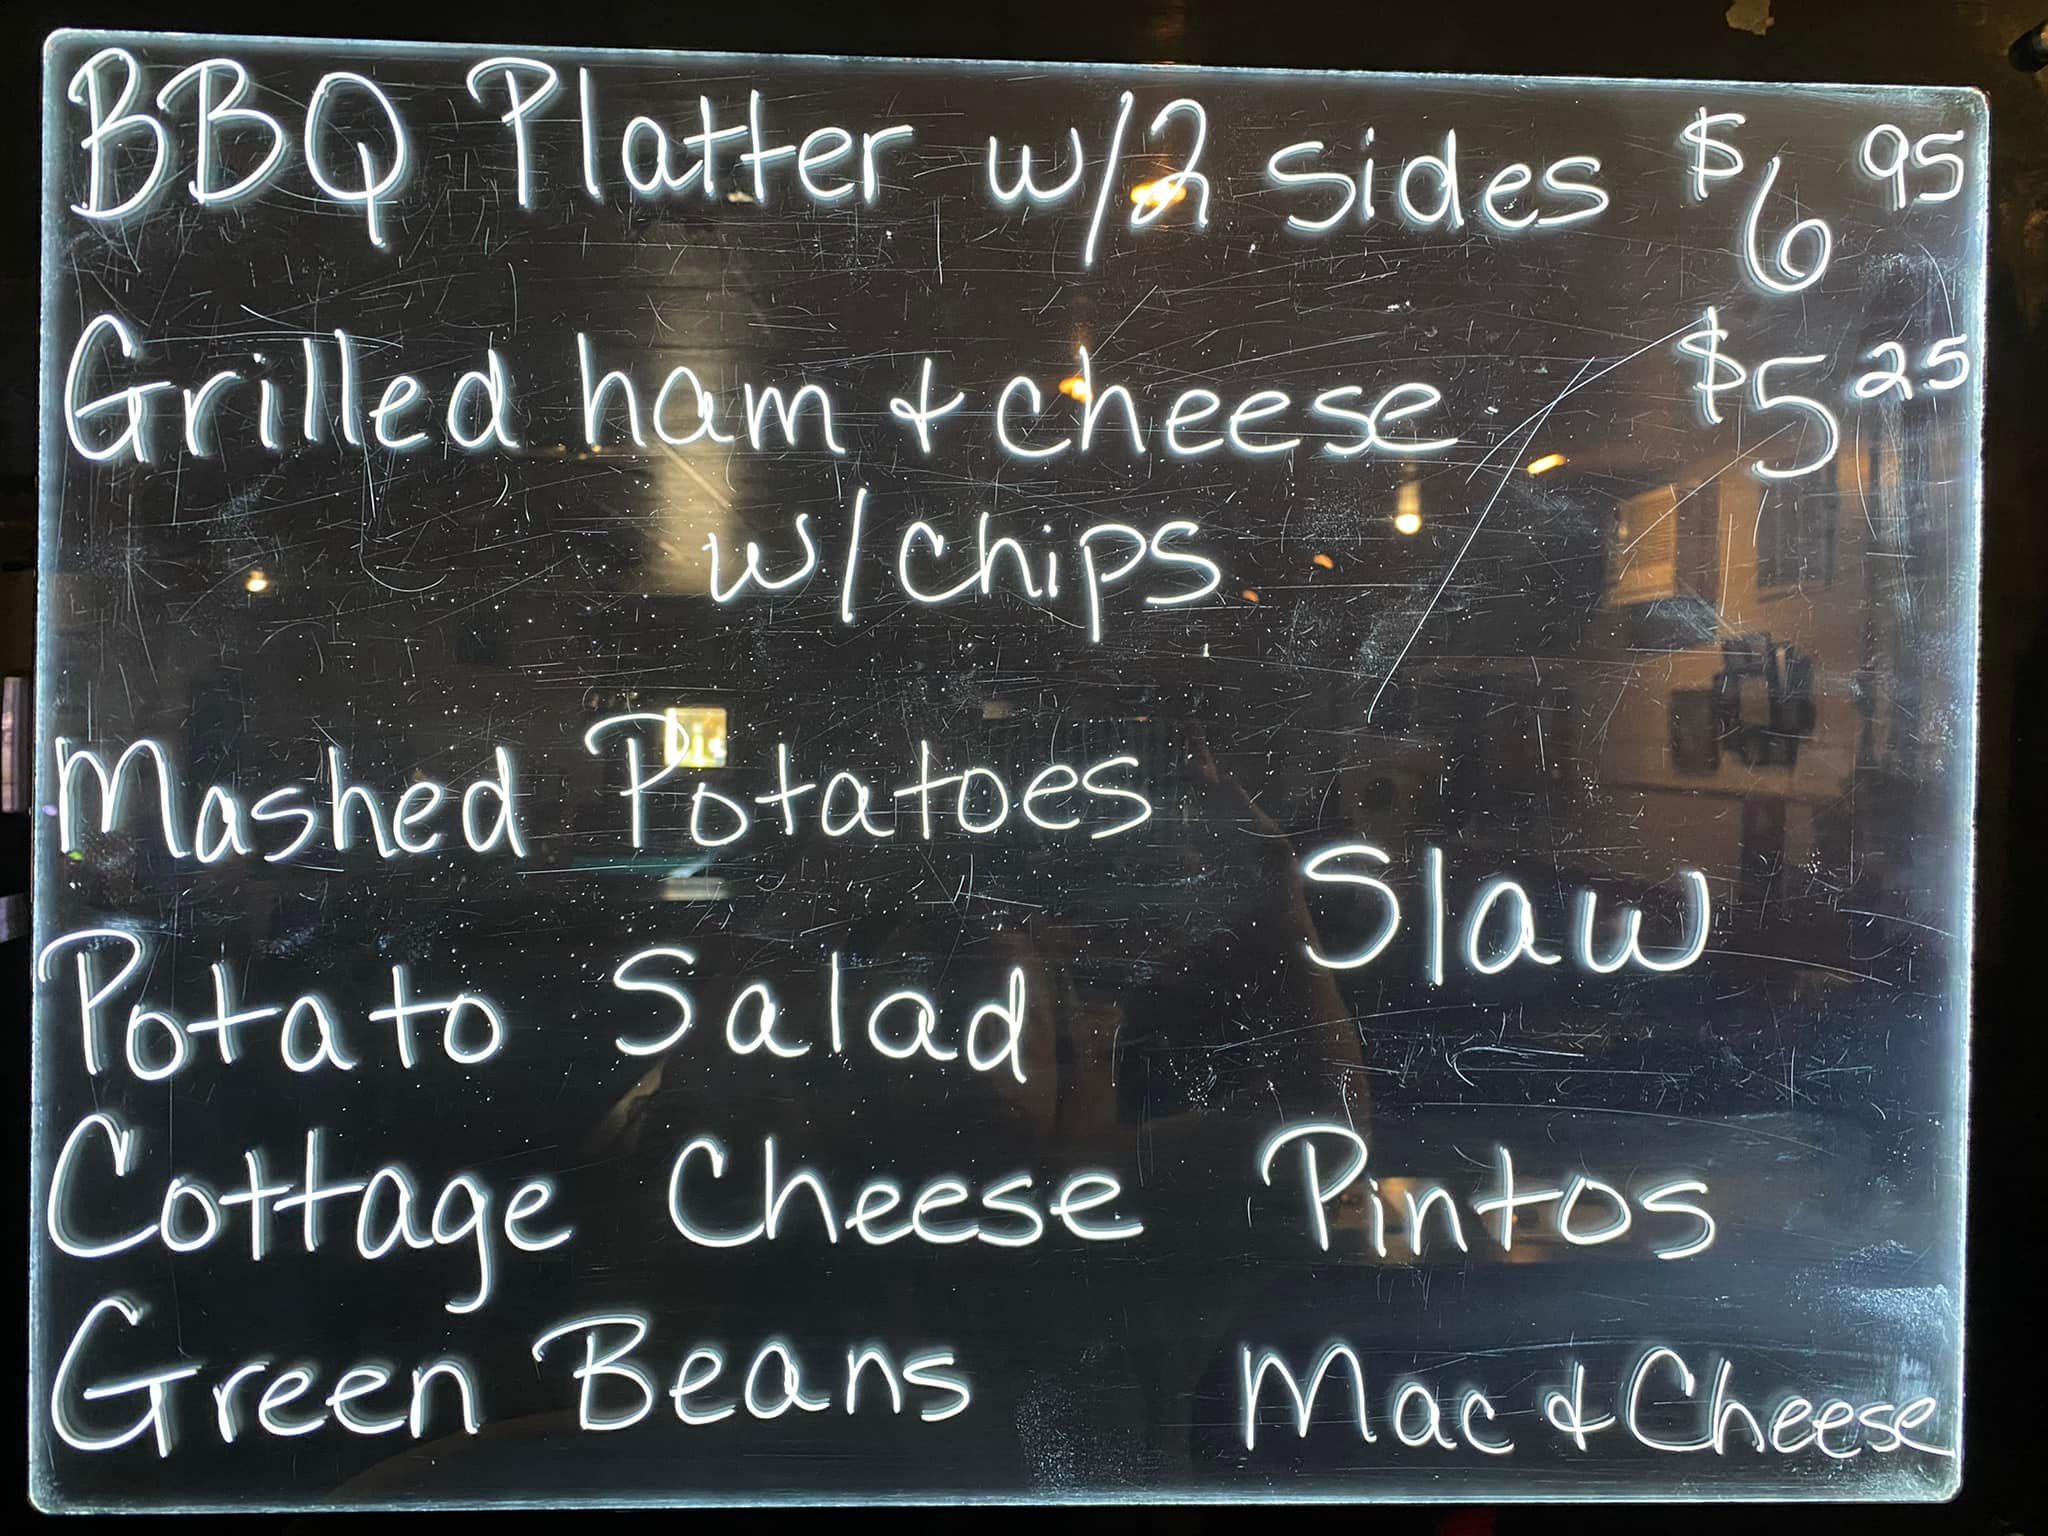 BBQ Platter w/2 sides $6 95
Grilled ham & cheese $5 25
w/chips
Mashed Potatoes
Slaw
Potato Salad
Cottage Cheese Pintos
Green Beans Mac & Cheese